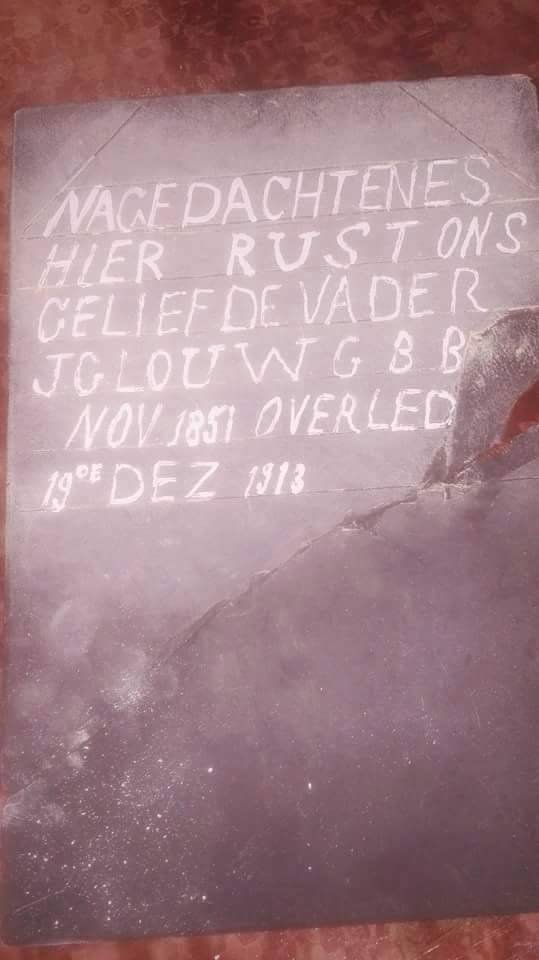 NAGEDACHTENES
HIER RUST ONS
GELIEFDE VADER
J G LOUW G B B
NOV 1851 OVERLED
19DE DEZ 1913